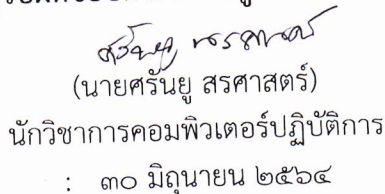 (นายศรันยู สรศาสตร์)
นักวิชาการคอมพิวเตอร์ปฏิบัติการ
: ๓๐ มิถุนายน ๒๕๖๔